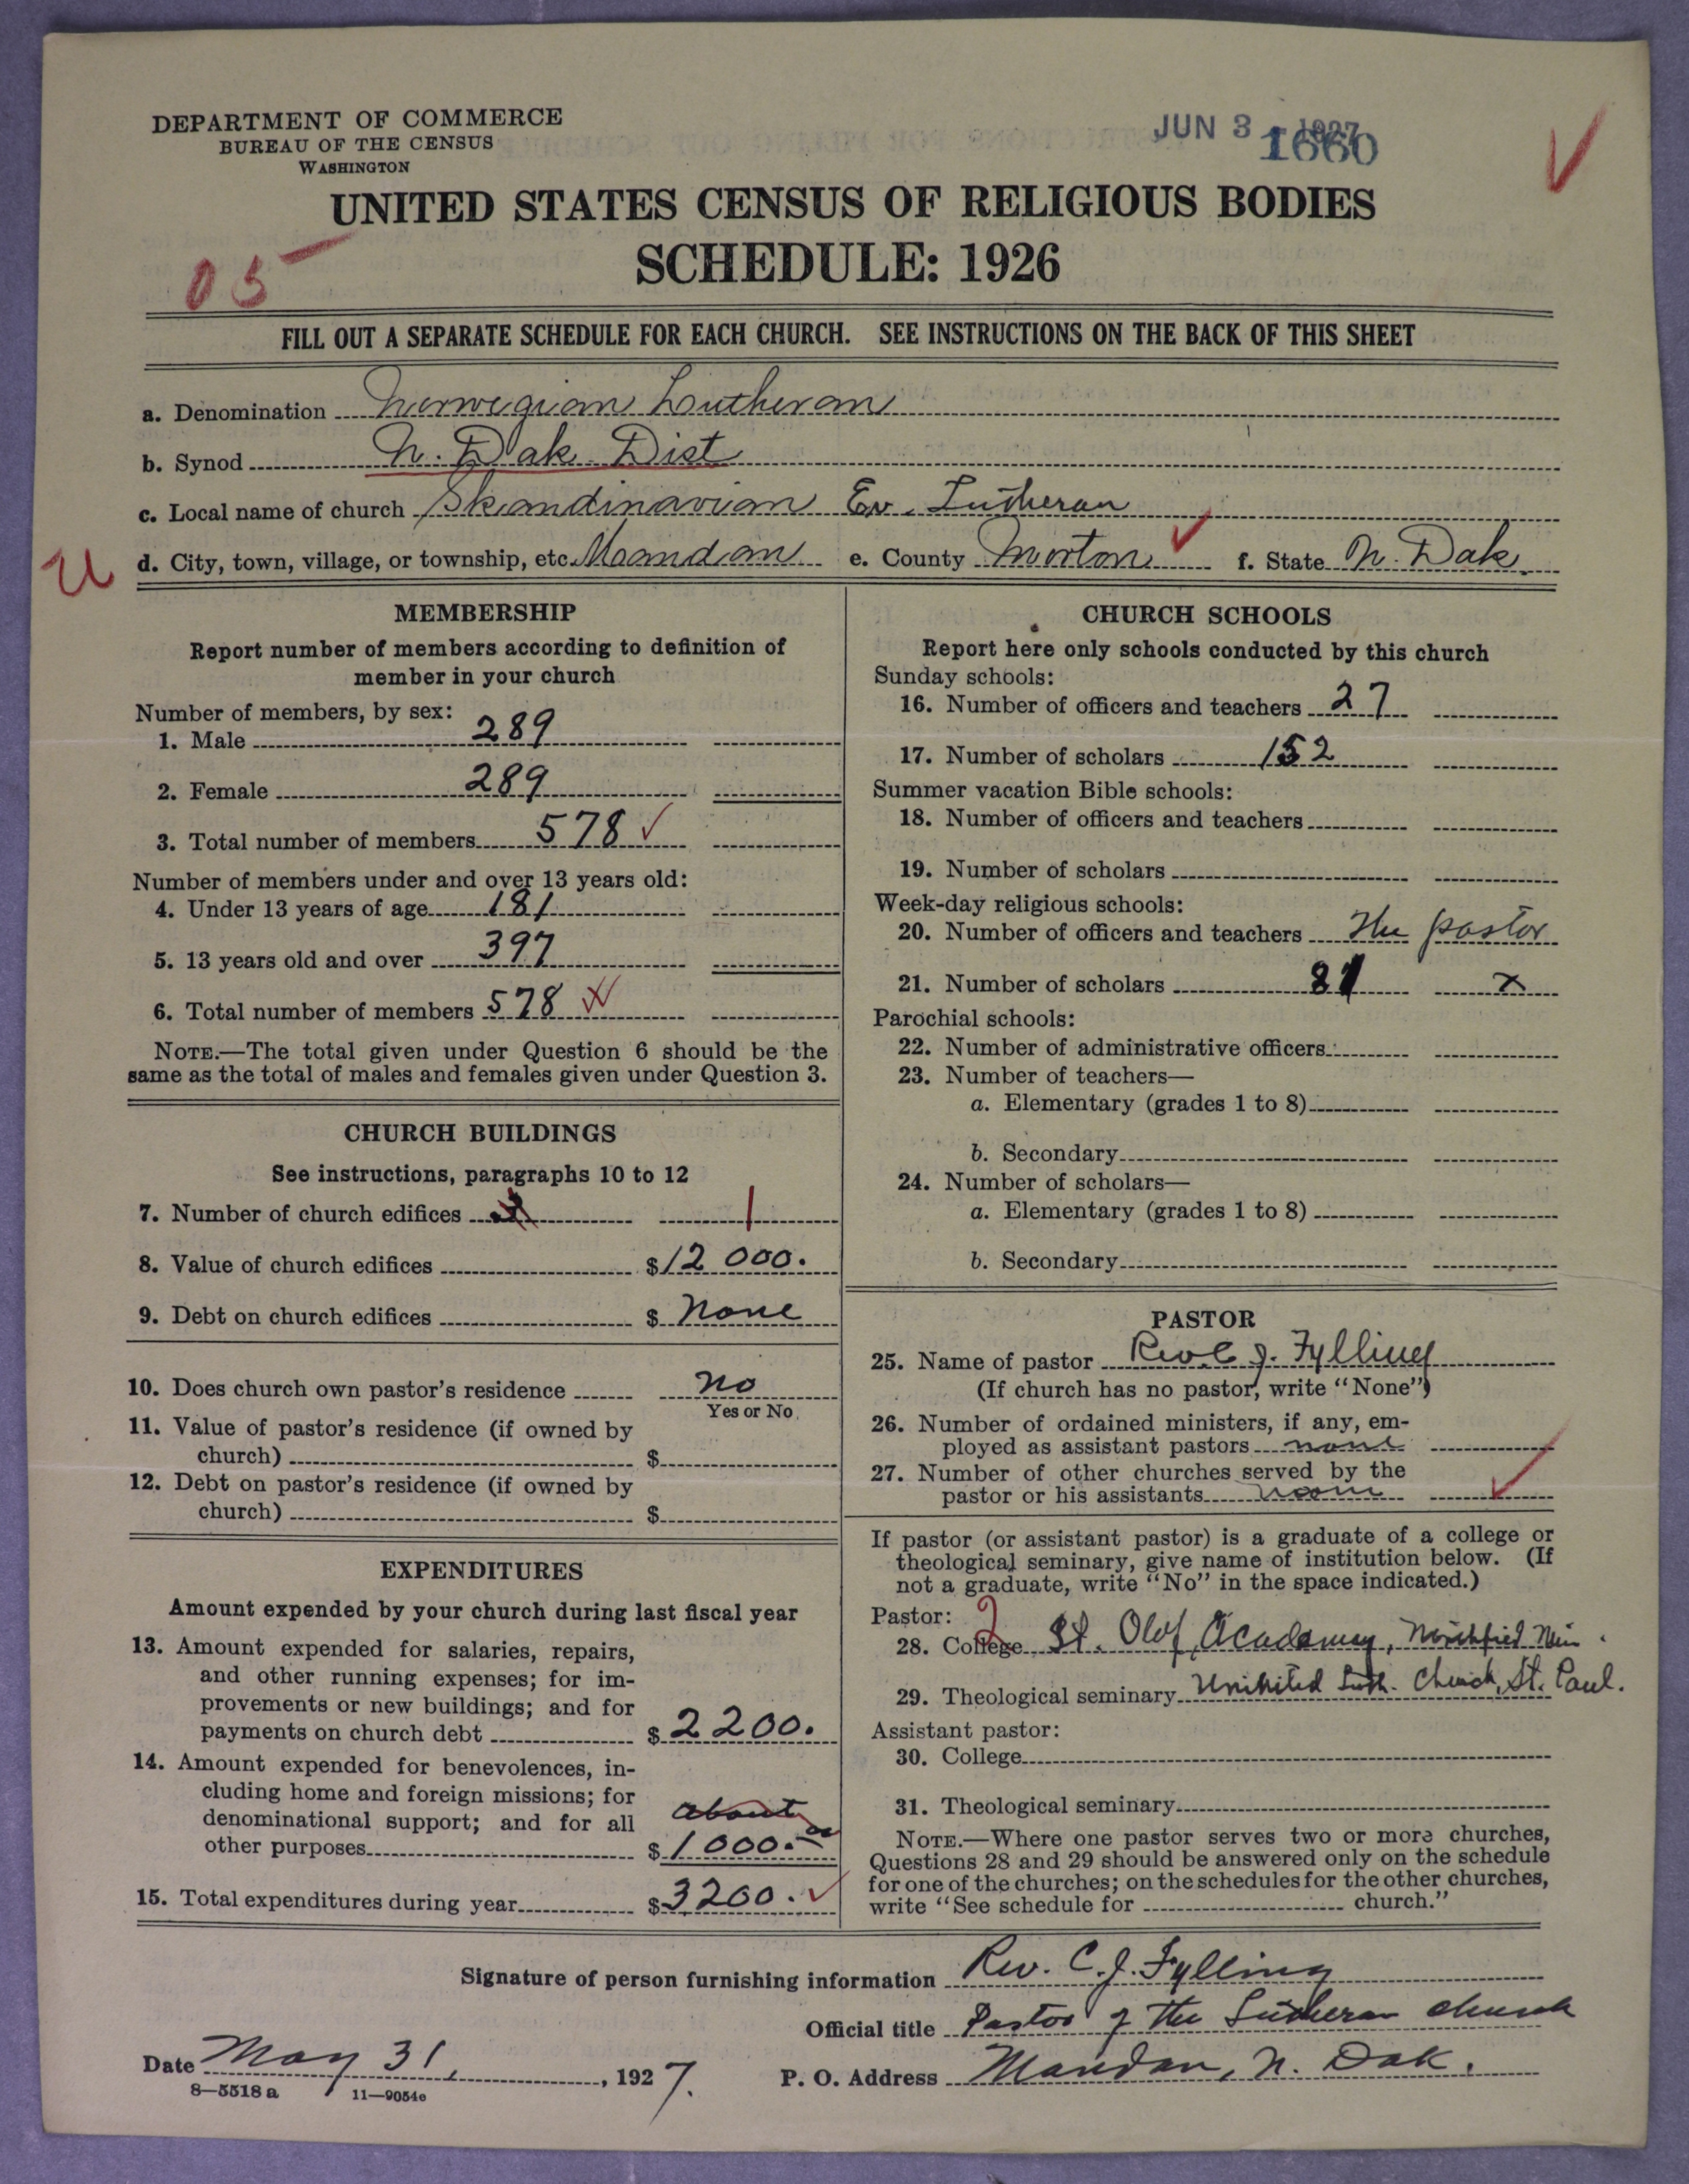 DEPARTMENT OF COMMERCE
BUREAU OF THE CENSUS
WASHINGTON
JUN 3 1927
1660
UNITED STATES CENSUS OF RELIGIOUS BODIES
SCHEDULE: 1926
05
FILL OUT A SEPARATE SCHEDULE FOR EACH CHURCH. SEE INSTRUCTIONS ON THE BACK OF THIS SHEET
a. Denomination Norwegian Lutheran
b. Synod N. Dak Dist
c. Local name of church Skandinavian Ev. Lutheran
U d. City, town, village, or township, etc. Maandan e. County Morton f. State N. Dak.
MEMBERSHIP
Report number of members according to definition of
member in your church
Number of members, by sex:
1. Male 289
2. Female 289
3. Total number of members 578 ✓
Number of members under and over 13 years old:
4. Under 13 years of age 181
5. 13 years old and over 397
6. Total number of members 578
NOTE.—The total given under Question 6 should be the
same as the total of males and females given under Question 3.
CHURCH BUILDINGS
See instructions, paragraphs 10 to 12
7. Number of church edifices 1
8. Value of church edifices $12 000.
9. Debt on church edifices $ None
10. Does church own pastor's residence no
Yes or No
11. Value of pastor's residence (if owned by
church) $
12. Debt on pastor's residence (if owned by
church) $
EXPENDITURES
Amount expended by your church during last fiscal year
13. Amount expended for salaries, repairs,
and other running expenses; for im-
provements or new buildings; and for
payments on church debt $2200.
14. Amount expended for benevolences, in-
cluding home and foreign missions; for
denominational support; and for all about
other purposes $1000.-
15. Total expenditures during year $3200. ✓
CHURCH SCHOOLS
Report here only schools conducted by this church
Sunday schools:
16. Number of officers and teachers 27
17. Number of scholars 152
Summer vacation Bible schools:
18. Number of officers and teachers
19. Number of scholars
Week-day religious schools:
20. Number of officers and teachers The pastor
21. Number of scholars 81 x
Parochial schools:
22. Number of administrative officers
23. Number of teachers—
a. Elementary (grades 1 to 8)
b. Secondary
24. Number of scholars—
a. Elementary (grades 1 to 8)
b. Secondary
PASTOR
25. Name of pastor Rev. C J. Fylling
(If church has no pastor, write "None")
26. Number of ordained ministers, if any, em-
ployed as assistant pastors none
27. Number of other churches served by the
pastor or his assistants ✓
If pastor (or assistant pastor) is a graduate of a college or
theological seminary, give name of institution below. (If
not a graduate, write "No" in the space indicated.)
Pastor: 2
28. College St. Olof Academy, Northfield Min.
29. Theological seminary Unihited Luth. Church, St. Paul.
Assistant pastor:
30. College
31. Theological seminary
NOTE.—Where one pastor serves two or more churches,
Questions 28 and 29 should be answered only on the schedule
for one of the churches; on the schedules for the other churches,
write "See schedule for church."
Signature of person furnishing information Rev. C. J. Fylling
Official title Pastor of the Lutheran church
Date May 31, 1927. P. O. Address Mandan, N. Dak.
8—5518 a 11—9054e